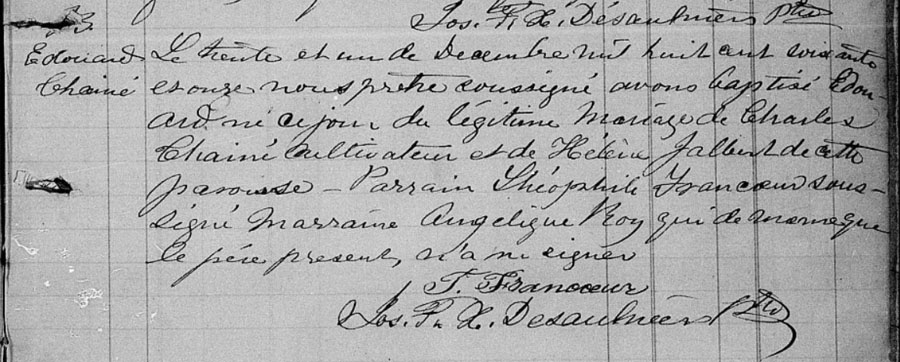 Jos. F. X. Désaulniers Ptre
Edouard
Chainé
Le trente et un de Decembre mil huit cent soixante
et onze nous prêtre soussigné avons baptisé Edou-
ard né ce jour du légitime Mariage de Charles
Chainé cultivateur et de Hélène Jalbert de cette
paroisse - Parrain Théophile Francœur sous-
signé Marraine Angélique Roy qui de meme que
le père present, n'a pu signer
T. Francœur
Jos. F. X. Desaulniers Ptre